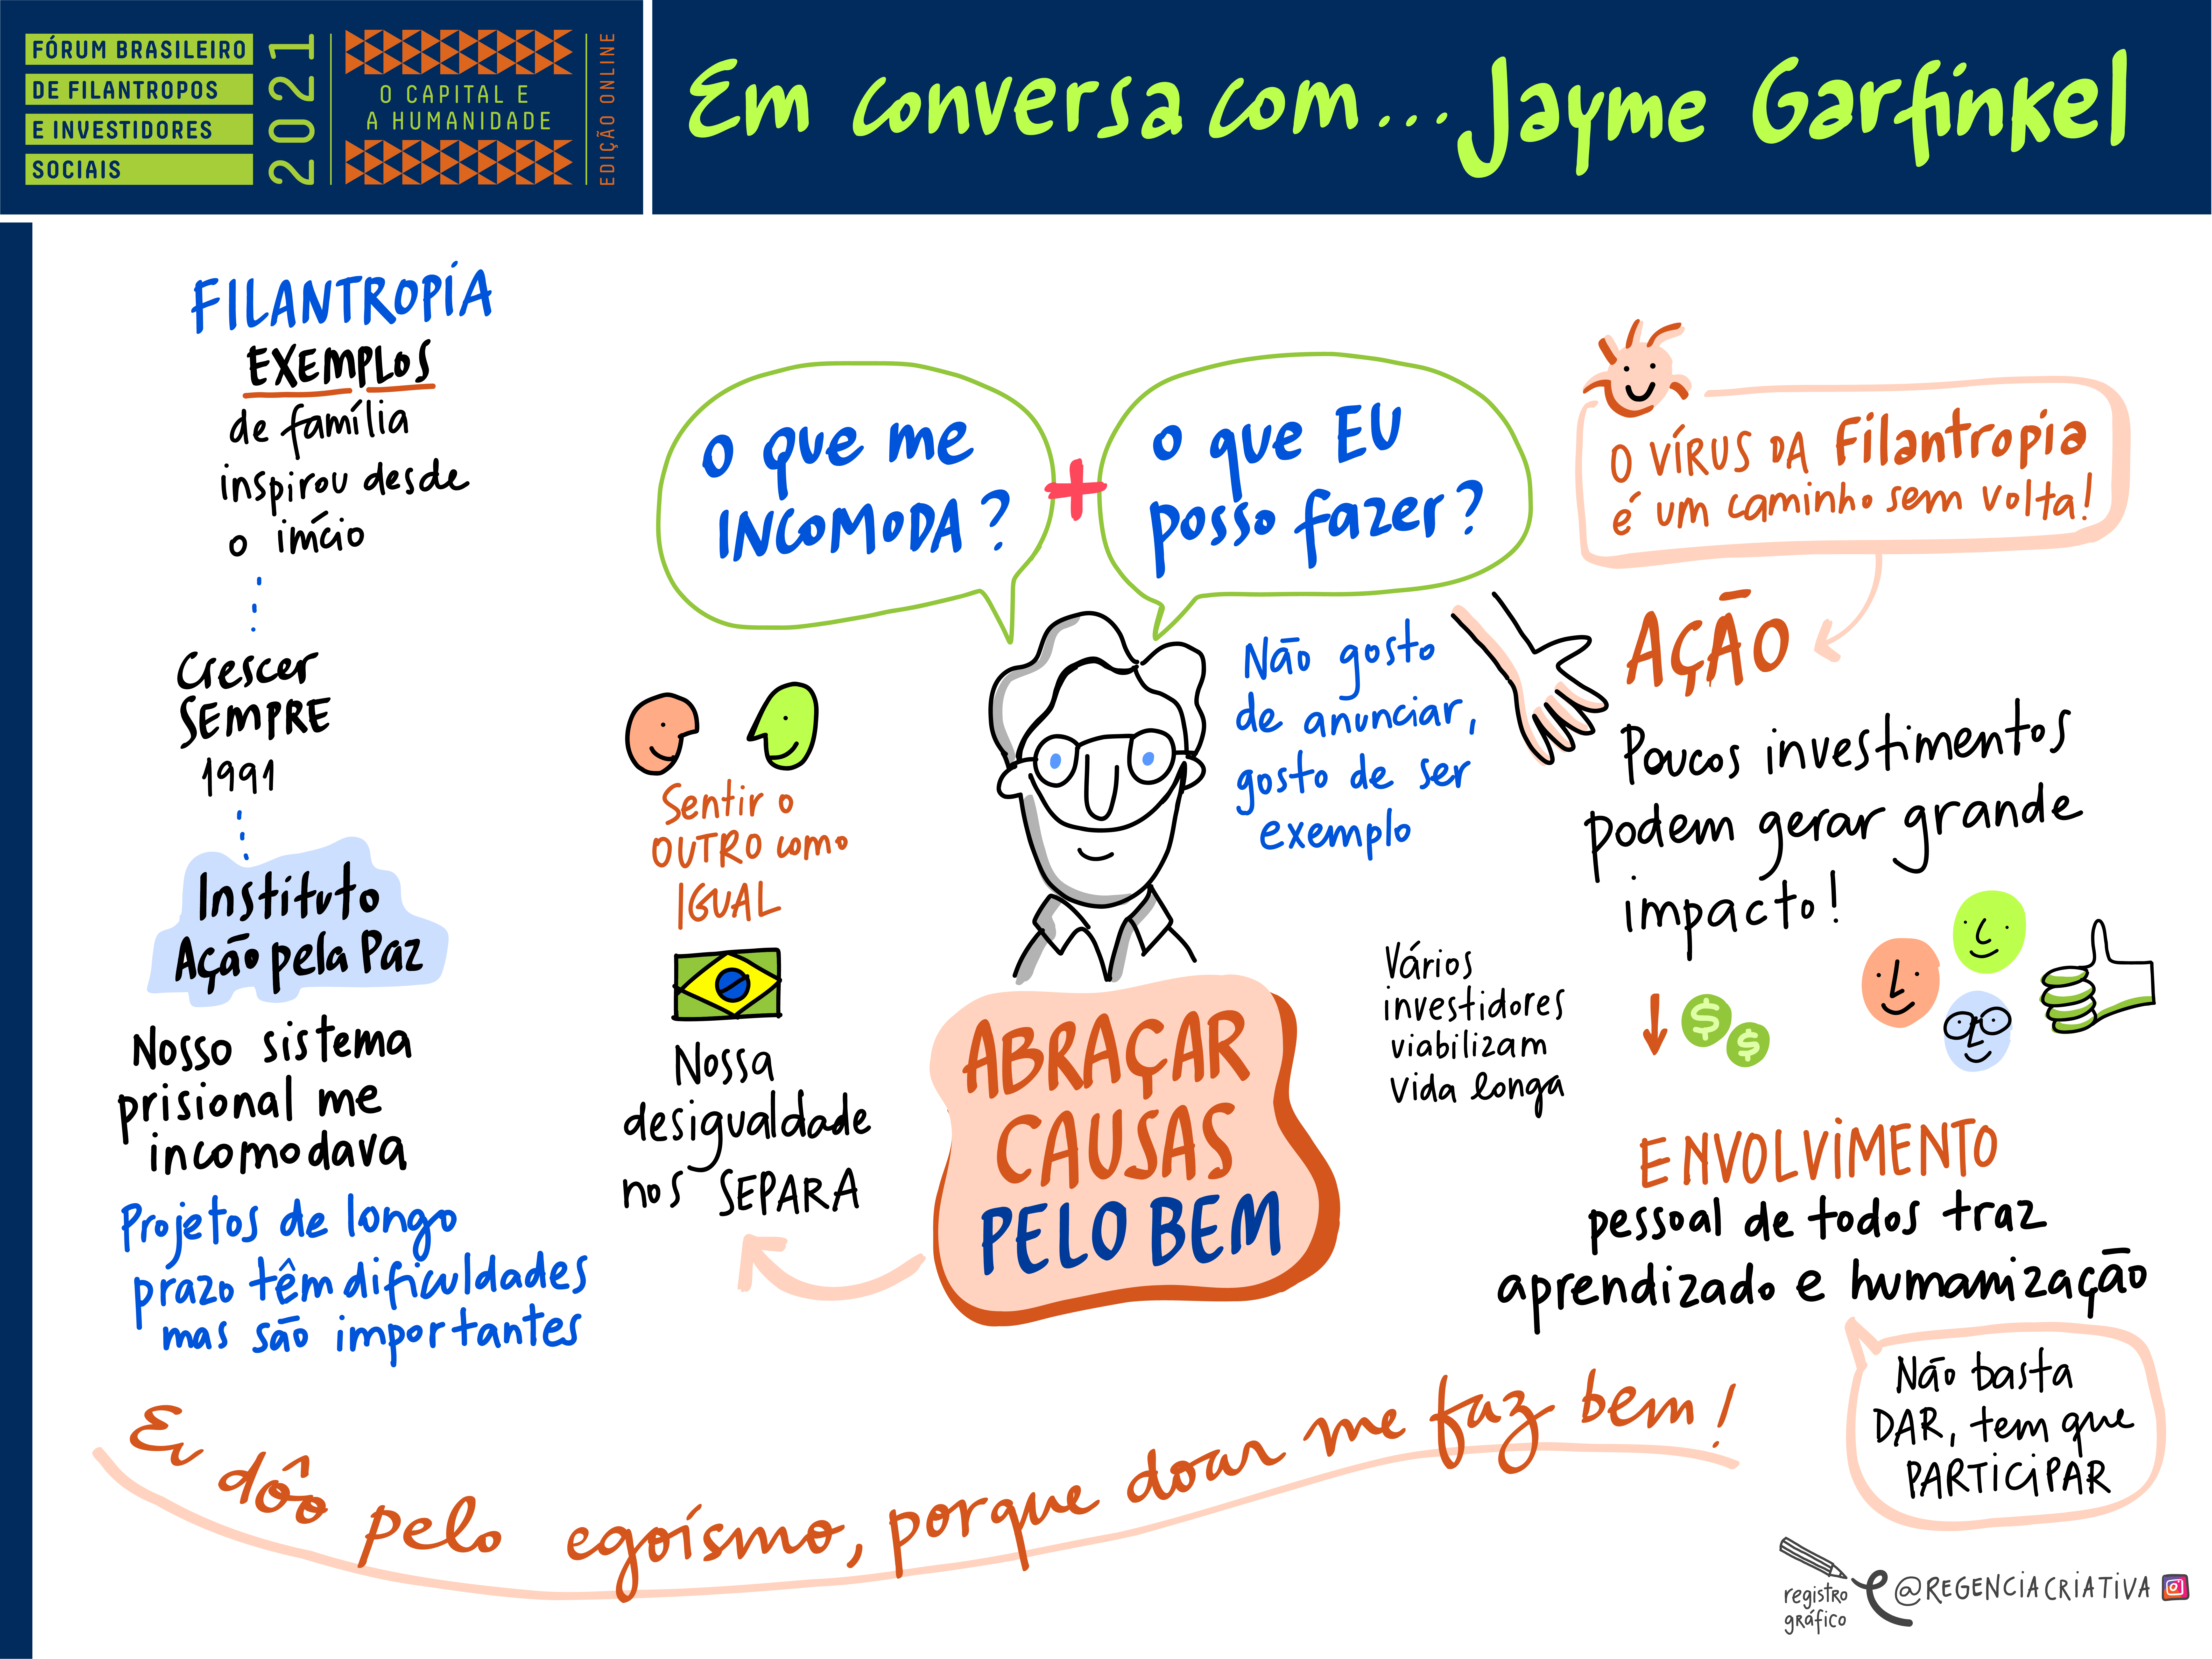 FÓRUM BRASILEIRO
DE FILANTROPOS
E INVESTIDORES
SOCIAIS
2021
O CAPITAL E
A HUMANIDADE
EDIÇÃO ONLINE
Em conversa com... Jayme Garfinkel
FILANTROPIA
EXEMPLOS
de família
inspirou desde
o início
Crescer
SEMPRE
1991
Instituto
Ação pela Paz
Nosso sistema
prisional me
incomodava
Projetos de longo
prazo têm dificuldades
mas são importantes
O que me
INCOMODA?
+
O que EU
posso fazer?
Sentir o
OUTRO como
IGUAL
Nossa
desigualdade
nos SEPARA
Não gosto
de anunciar,
gosto de ser
exemplo
ABRAÇAR
CAUSAS
PELO BEM
O VÍRUS DA Filantropia
é um caminho sem volta!
AÇÃO
Poucos investimentos
podem gerar grande
impacto!
Vários
investidores
viabilizam
vida longa
$
$
ENVOLVIMENTO
pessoal de todos traz
aprendizado e humanização
Não basta
DAR, tem que
PARTICIPAR
Eu dôo pelo egoísmo, porque doar me faz bem!
registro
gráfico
@REGENCIACRIATIVA